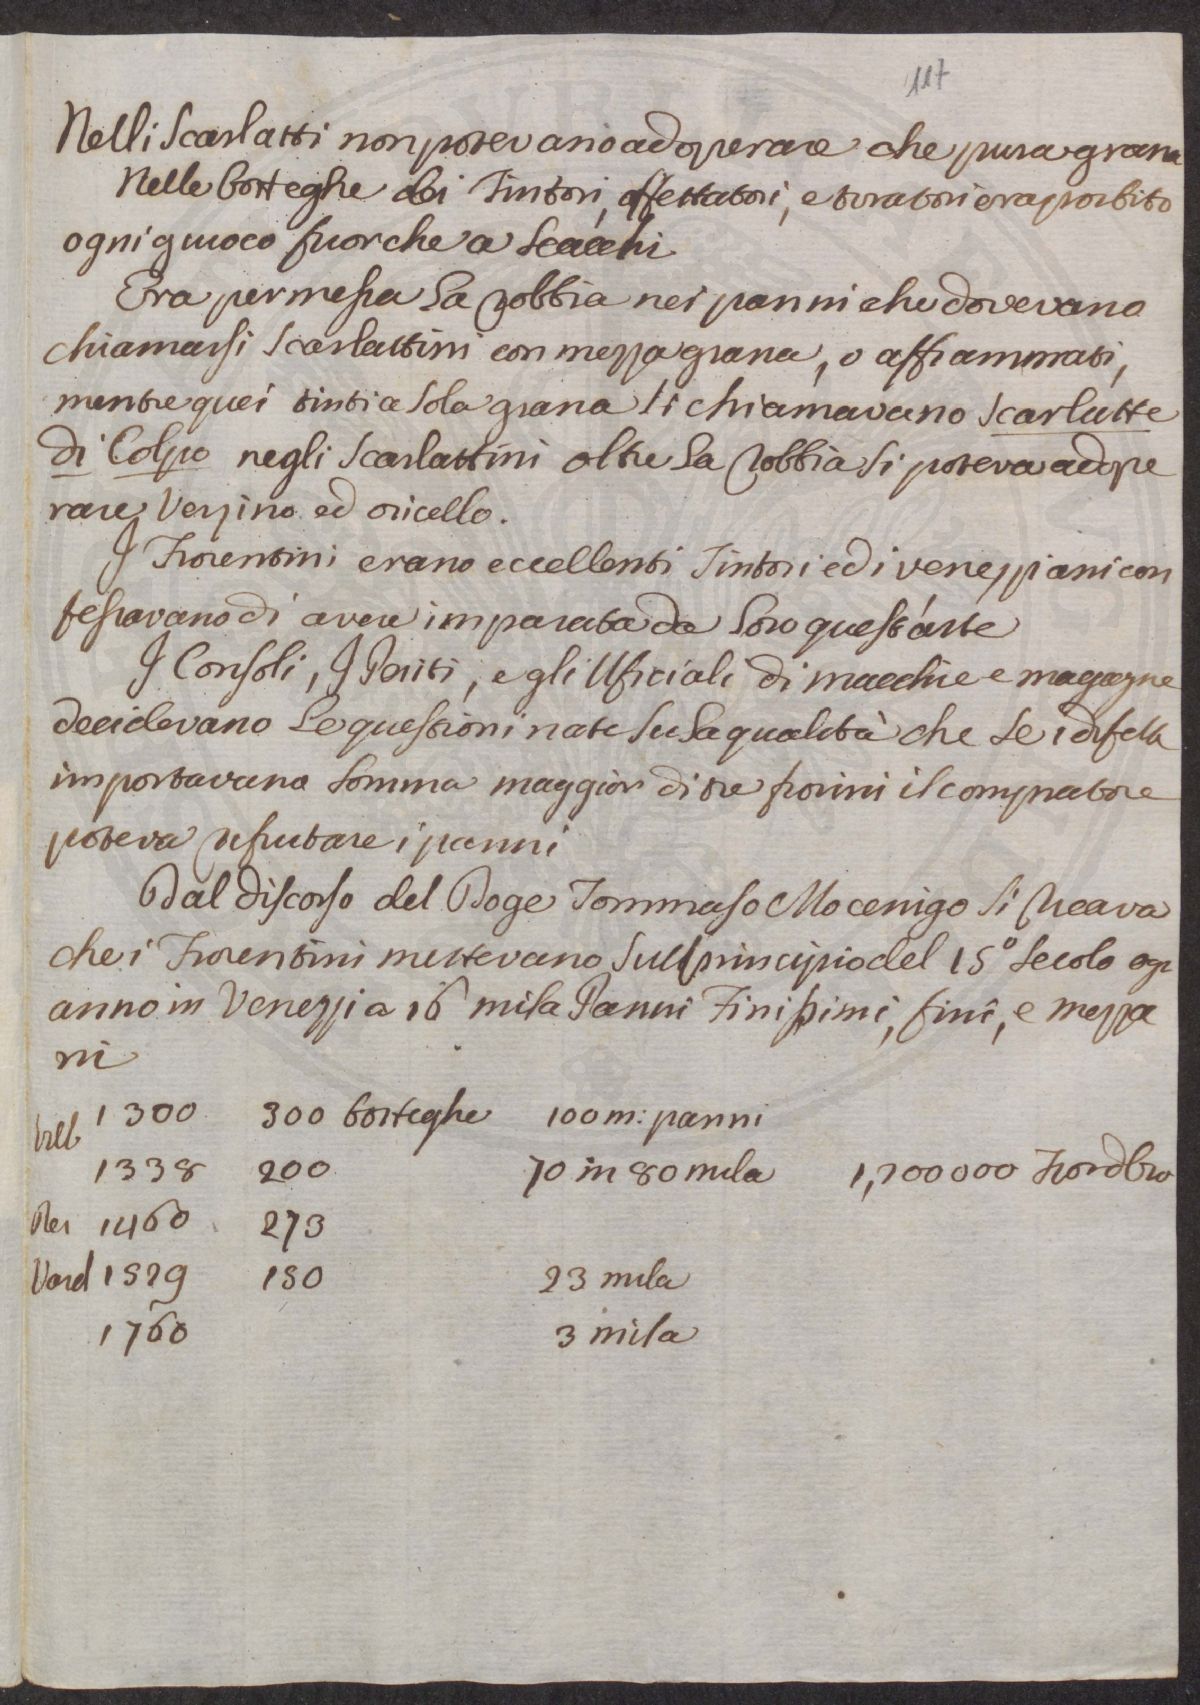 117
Nelli Scarlatti non potevano adoperare che pura grana
Nelle botteghe dei Tintori, affettatori, e tiratori era proibito
ogni giuoco fuorche a Scacchi
Era permessa la robbia nei panni che dovevano
chiamarsi Scarlattini con mezza grana, o affiammati,
mentre quei tinti a sola grana si chiamavano Scarlatte
di Colpo negli Scarlattini oltre la robbia si poteva adope
rare Verzino ed oricello.
I Fiorentini erano eccellenti Tintori ed i venezziani con
fessavano di avere imparata da loro quest'arte
I Consoli, I Periti, e gli Uficiali di macchie e magagne
decidevano le questioni nate su la qualità che se i difetti
importavano somma maggior di tre fiorini il compratore
poteva rifiutare i panni
Dal discorso del Doge Tommaso Mocenigo si ricava
che i Fiorentini mettevano sul principio del 15º secolo ogni
anno in Venezzia 16 mila Panni Finissimi, fini, e mezza
ni
Vill 1300 300 botteghe 100 m: panni
1338 200 70 in 80 mila 1,200000 Fiord'oro
Dei 1460 273
Varch 1529 150 23 mila
1760 3 mila